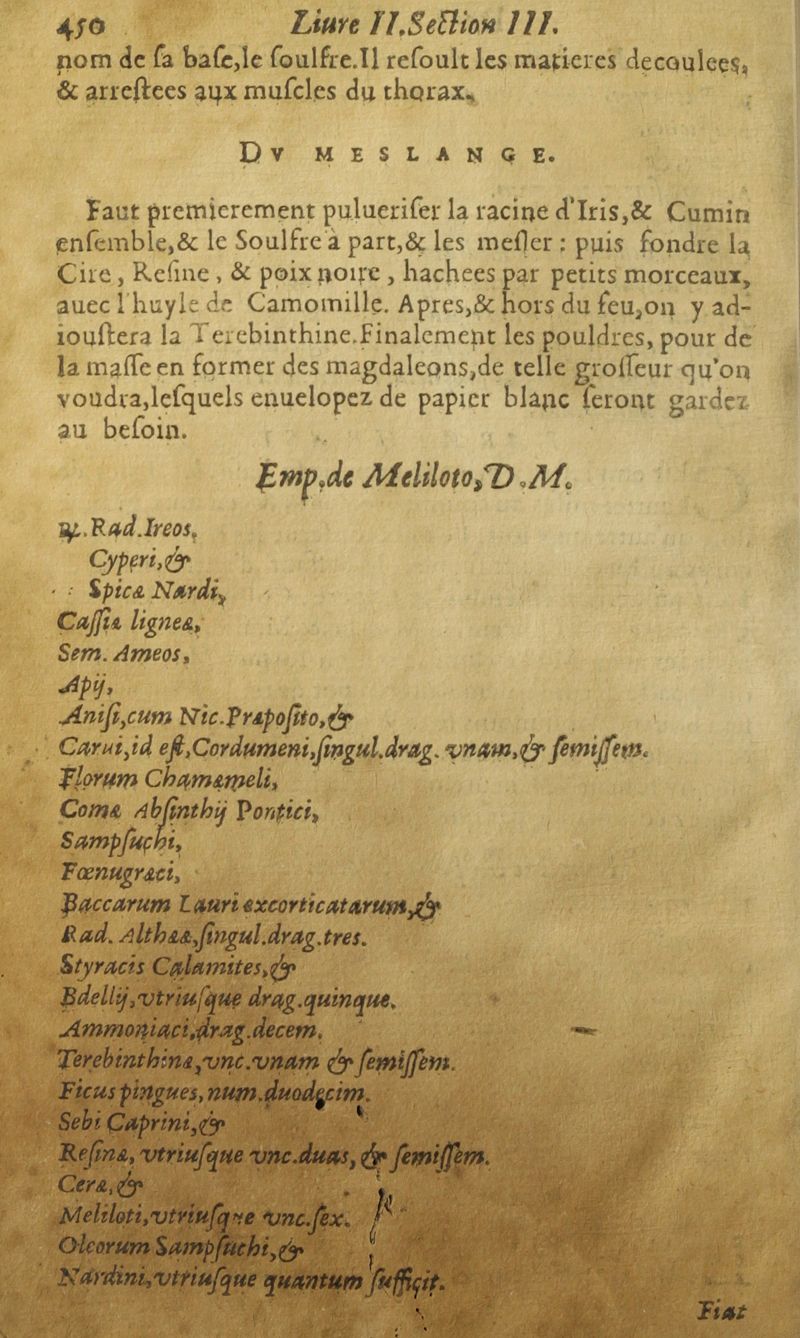 450 Liure II. Section III.
nom de sa base,le soulfre.Il resoult les matieres decoulees,
& arrestees aux muscles du thorax.
DV MESLANGE.
Faut premierement puluerifer la racine d'Iris,& Cumin
ensemble,& le Soulfre à part,& les mesler : puis fondre la
Cire, Resine, & poix noire, hachees par petits morceaux,
auec l'huyle de Camomille. Apres,& hors du feu,on y ad-
ioustera la Terebinthine.Finalement les pouldres, pour de
la masse en former des magdaleons,de telle grosseur qu'on
voudra,lesquels enuelopez de papier blanc seront gardez
au besoin.
Emp.de Meliloto,D.M.
℞.Rad.Ireos,
Cyperi,&
Spicæ Nardi,
Cassiæ ligneæ,
Sem. Ameos,
Apij,
Anisi,cum Nic.Præposito,&
Carui,id est,Cordumeni,singul.drag. vnam,& semissem.
Florum Chamæmeli,
Comæ Absinthij Pontici,
Sampsuchi,
Fœnugræci,
Baccarum Lauri excorticatarum,&
Rad. Altheæ,singul.drag.tres.
Styracis Calamites,&
Bdellij,vtriusque drag.quinque.
Ammoniaci,drag.decem.
Terebinthinæ,vnc.vnam & semissem.
Ficus pingues, num.duodecim.
Sebi Caprini,&
Resinæ, vtriusque vnc.duas, & semissem.
Ceræ,&
Meliloti,vtriusque vnc.sex.
Oleorum Sampsuchi,&
Nardini,vtriusque quantum sufficit.
Fiat